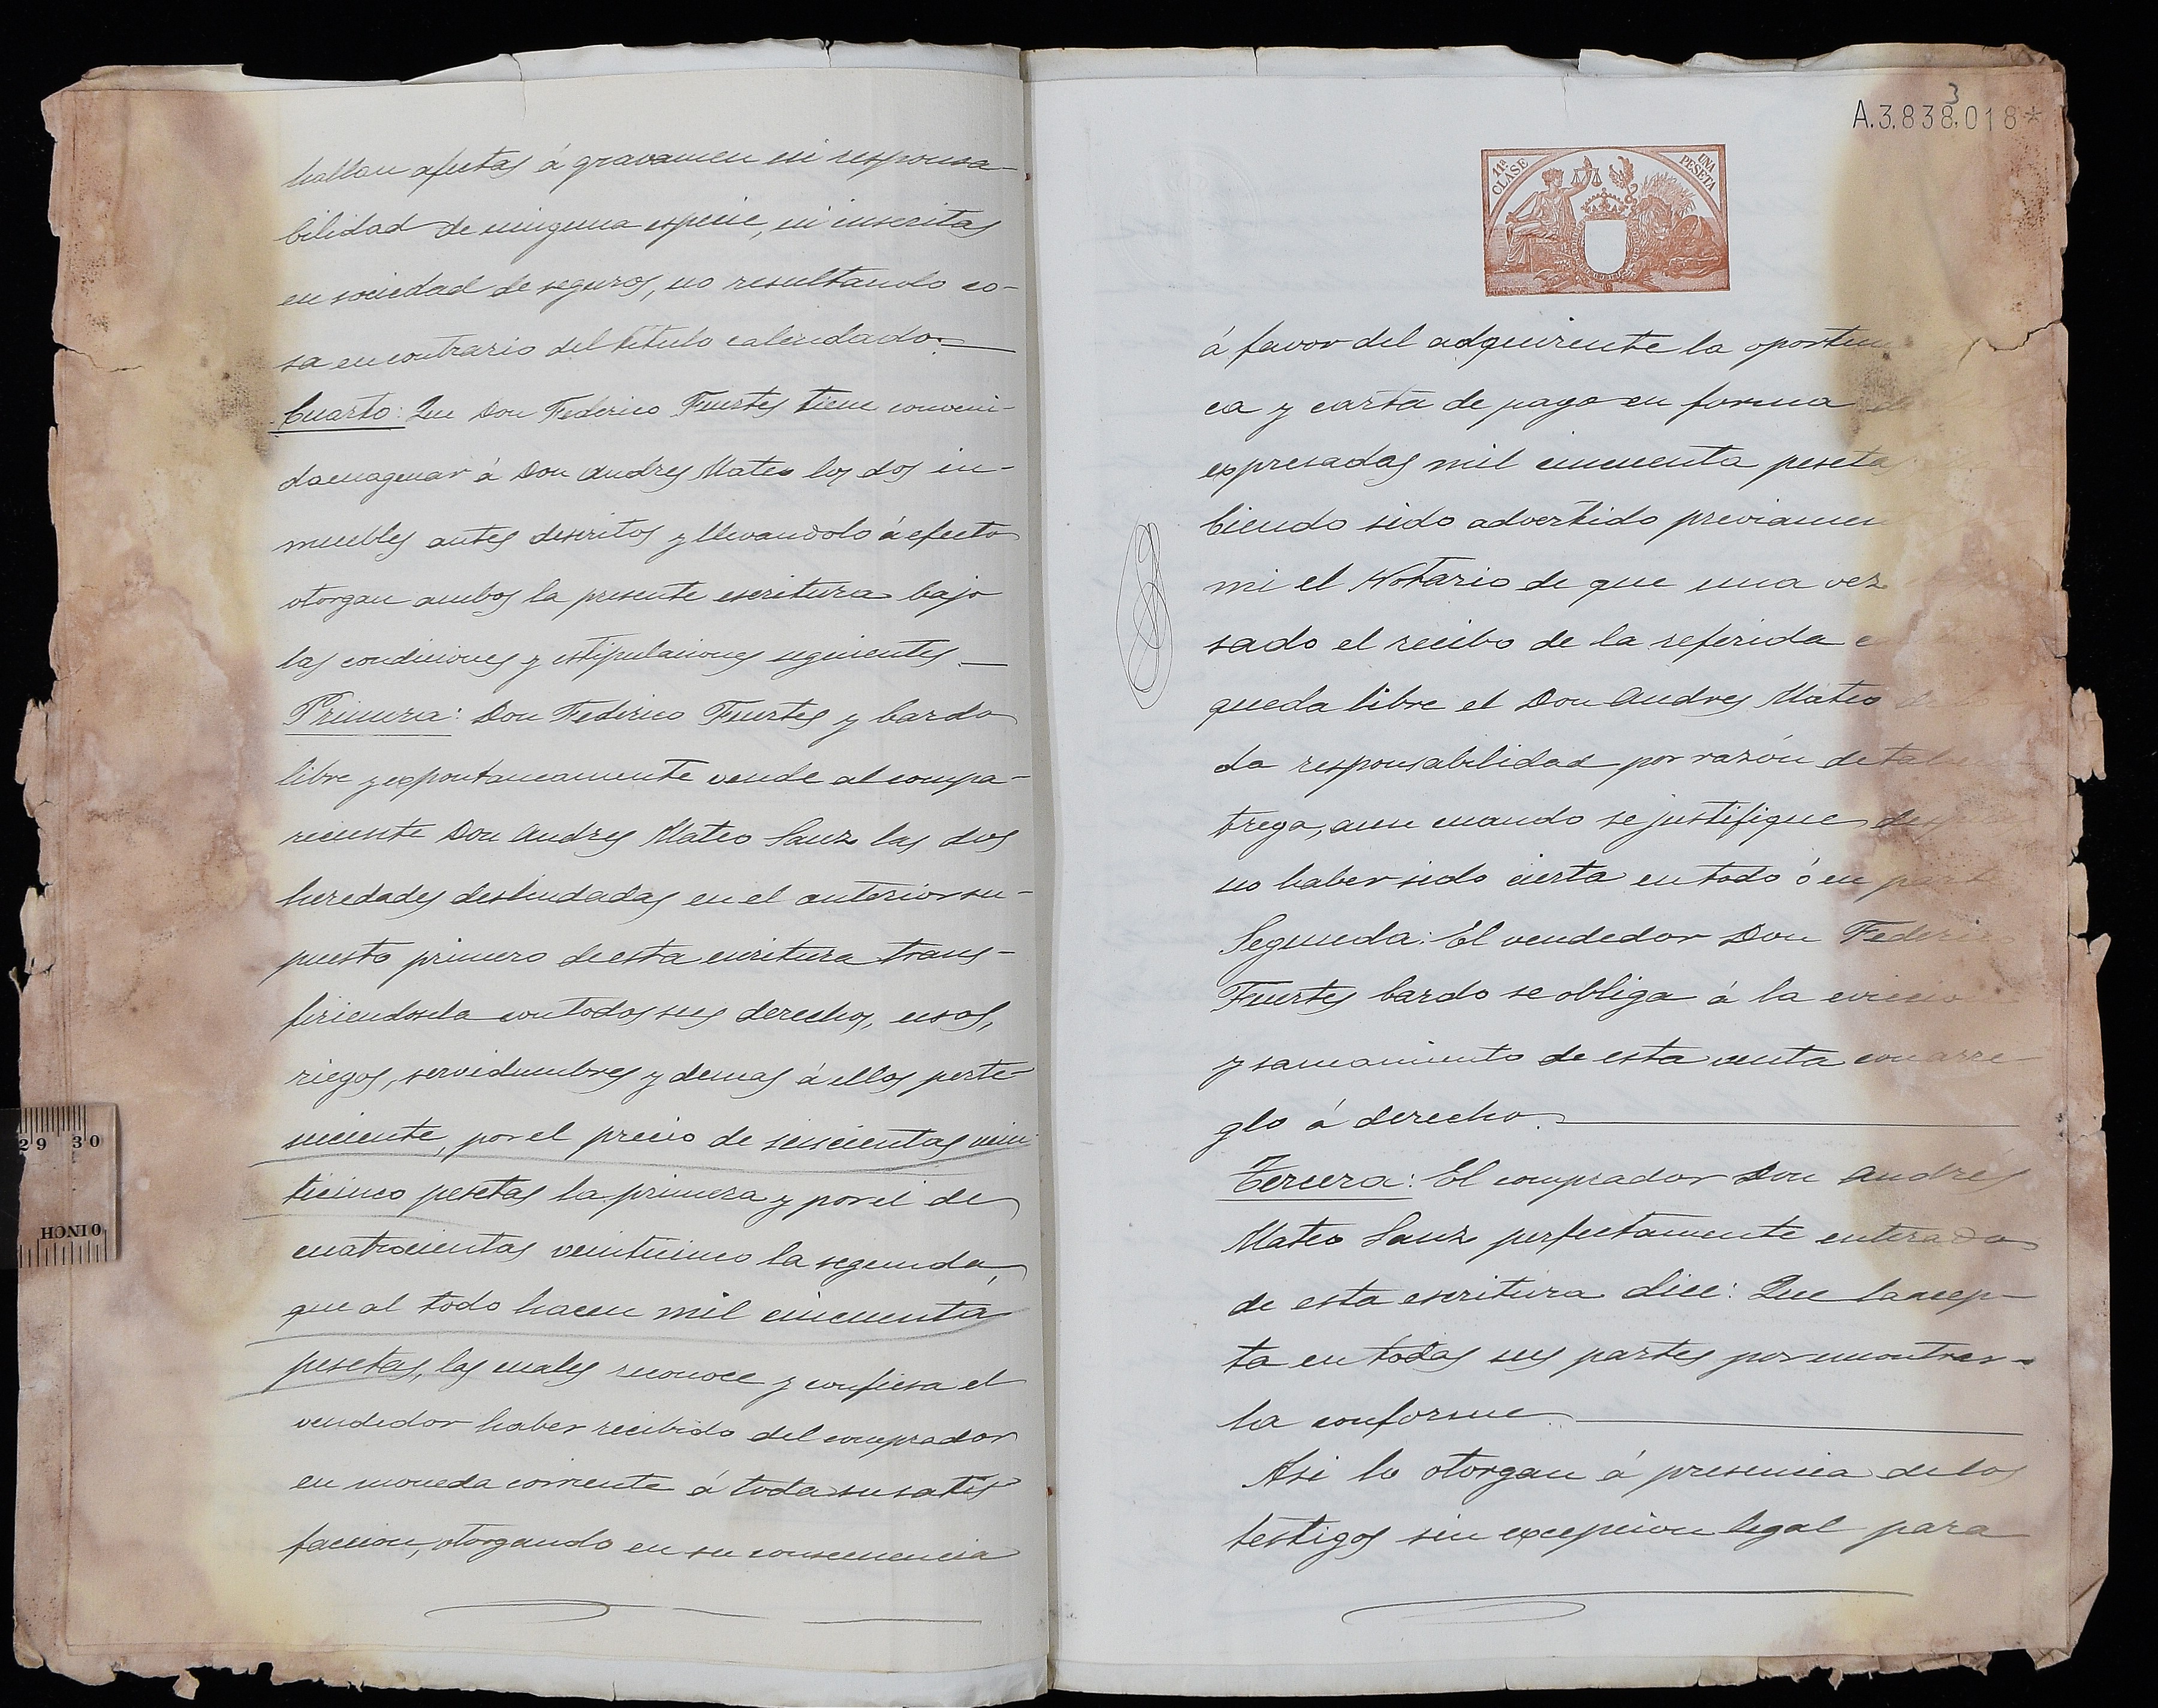 hallan afectas á gravamen ni responsa-
bilidad de ninguna especie, ni inscritas
en sociedad de seguros, no resultando co-
sa en contrario del título calendado.
Cuarto: Que Don Federico Fuertes tiene conveni-
do enagenar á Don Andres Mateo los dos in-
muebles antes descritos y llevandolo á efecto
otorgan ambos la presente escritura bajo
las condiciones y estipulaciones siguientes
Primera: Don Federico Fuertes y Bardo
libre y espontaneamente vende al compa-
reciente Don Andres Mateo Sanz las dos
heredades deslindadas en el anterior su-
puesto primero de esta escritura trans-
firiendosela con todos sus derechos, usos,
riegos, servidumbres y demas á ellos perte-
neciente, por el precio de seiscientas vein-
ticinco pesetas la primera y por el de
cuatrocientas veinticinco la segunda,
que al todo hacen mil cincuenta
pesetas, las cuales reconoce y confiesa el
vendedor haber recibido del comprador
en moneda corriente á toda su satis
faccion, otorgando en su consecuencia
3
A.3,838,018*
11ª CLASE
UNA PESETA
á favor del adquirente la oportun
ca y carta de pago en forma
expresadas mil cincuenta peseta
biendo sido advertido previamen
mi el Notario de que una vez
sado el recibo de la referida
queda libre el Don Andres Mateo
da responsabilidad por razón de tal
trega, aun cuando se justifique
no haber sido cierta en todo ó en part
Segunda: El vendedor Don Federico
Fuertes Bardo se obliga á la eviccio
y saneamiento de esta venta con arre
glo á derecho.
Tercera: El comprador Don Andrés
Mateo Sanz perfectamente enterado
de esta escritura dice: Que la acep-
ta en todas sus partes por encontrar-
la conforme.
Asi lo otorgan á presencia de los
testigos sin excepcion legal para